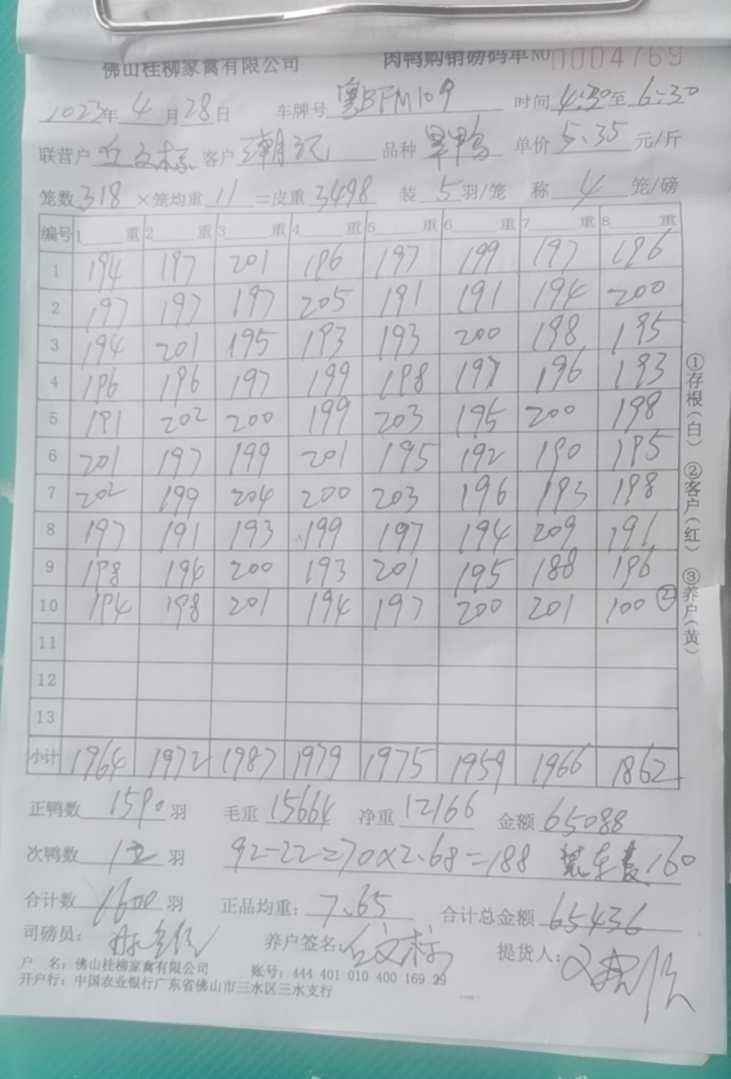 佛山桂柳家禽有限公司 肉鸭购销磅码单 NO 0004769
2023年 4 月 28 日 车牌号 粤BFM109 时间 4:30 至 6:30
联营户 丘文标 客户 潮记 品种 单价 5.35 元/斤
笼数 318 ×笼均重 11 =皮重 3498 装 5 羽/笼 称 4 笼/磅
编号 1 重 2 重 3 重 4 重 5 重 6 重 7 重 8 重
1 194 197 201 196 197 199 197 196
2 197 197 197 205 191 191 194 200
3 194 201 195 193 193 200 198 195
4 196 196 197 199 198 197 196 193
5 191 202 200 199 203 195 200 198
6 201 197 199 201 195 192 190 195
7 202 199 204 200 203 196 193 198
8 197 191 193 199 197 194 209 191
9 198 194 200 193 201 195 188 196
10 194 198 201 194 197 200 201 100 ②
11
12
13
小计 1964 1972 1987 1979 1975 1959 1966 1862
正鸭数 1590 羽 毛重 15664 净重 12166 金额 65088
次鸭数 羽 92-22=70×2.68=188 160
合计数 1600 羽 正品均重: 7.65 合计总金额 65436
司磅员: 养户签名: 丘文标 提货人:
户 名: 佛山桂柳家禽有限公司 账号: 444 401 010 400 169 29
开户行: 中国农业银行广东省佛山市三水区三水支行
①存根(白) ②客户(红) ③养户(黄)